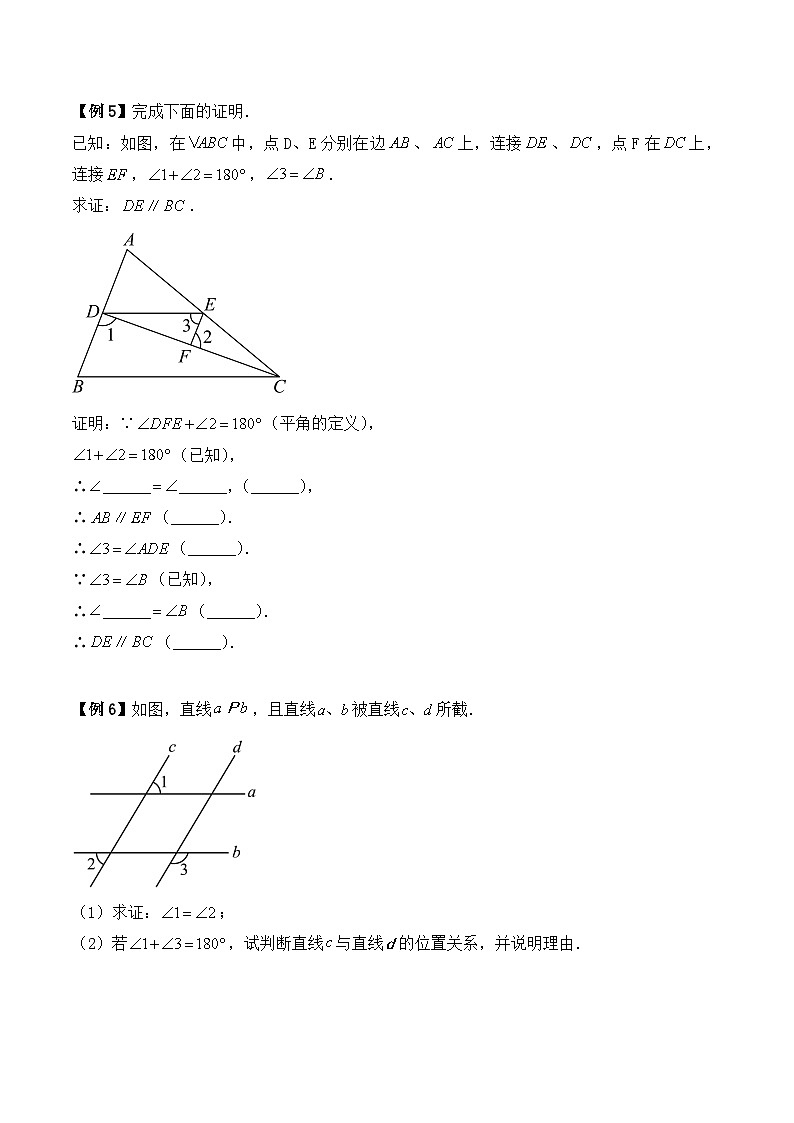 【例5】完成下面的证明.
已知:如图,在VABC中,点D、E分别在边AB、AC上,连接DE、DC,点F在DC上,
连接EF,∠1+∠2=180°,∠3=∠B.
求证:DE∥BC.
A
D
E
1
3
2
F
B
C
证明:∵∠DFE+∠2=180°(平角的定义),
∠1+∠2=180°(已知),
∴∠______=∠______,(______),
∴AB∥EF(______).
∴∠3=∠ADE(______).
∵∠3=∠B(已知),
∴∠______=∠B(______).
∴DE∥BC(______).
【例6】如图,直线a Pb,且直线a、b被直线c、d所截.
c
d
1
a
2
3
b
(1)求证:∠1=∠2;
(2)若∠1+∠3=180°,试判断直线c与直线d的位置关系,并说明理由.